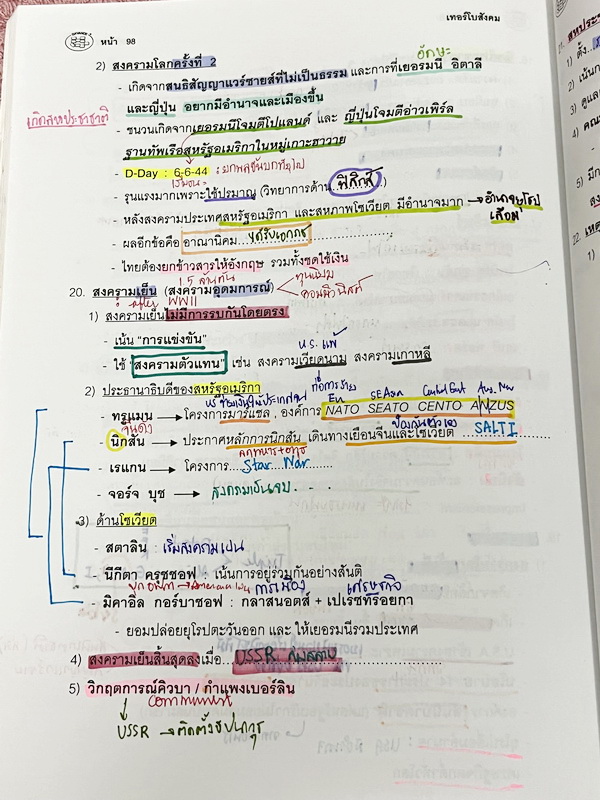 หน้า 98
เทอร์โบสังคม
2) สงครามโลกครั้งที่ 2
อักษะ
- เกิดจากสนธิสัญญาแวร์ซายส์ที่ไม่เป็นธรรม และการที่เยอรมนี อิตาลี
และญี่ปุ่น อยากมีอำนาจและเมืองขึ้น
เกิดสหประชาชาติ
- ชนวนเกิดจากเยอรมนีโจมตีโปแลนด์ และ ญี่ปุ่นโจมตีอ่าวเพิร์ล
ฐานทัพเรือสหรัฐอเมริกาในหมู่เกาะฮาวาย
- D-Day : 6-6-44 :
- รุนแรงมากเพราะใช้ปรมาณู (วิทยาการด้าน..ฟิสิกส์..)
- หลังสงครามประเทศสหรัฐอเมริกา และสหภาพโซเวียต มีอำนาจมาก → อำนาจยุโรป
เสื่อม
- ผลอีกข้อคือ อาณานิคม...ได้รับเอกราช
- ไทยต้องยกข้าวสารให้อังกฤษ รวมทั้งชดใช้เงิน
1.5 ล้านตัน
ทุนนิยม
20. สงครามเย็น (สงครามอุดมการณ์)
คอมมิวนิสต์
: after WWII
1) สงครามเย็นไม่มีการรบกันโดยตรง
- เน้น "การแข่งขัน"
U.S. แพ้
- ใช้ "สงครามตัวแทน" เช่น สงครามเวียดนาม สงครามเกาหลี
2) ประธานาธิบดีของสหรัฐอเมริกา
- ทรูแมน → โครงการมาร์แชล, องค์การ NATO SEATO CENTO ANZUS
- นิกสัน → ประกาศหลักการนิกสัน เดินทางเยือนจีนและโซเวียต SALT I
- เรแกน → โครงการ....Star War....
- จอร์จ บุช → สงครามเย็นจบ
3) ด้านโซเวียต
- สตาลิน : เริ่มสงครามเย็น
- นีกีตา ครุชชอฟ : เน้นการอยู่ร่วมกันอย่างสันติ
การเมือง เศรษฐกิจ
- มิคาอิล กอร์บาชอฟ : กลาสนอสต์ + เปเรซทรอยกา
- ยอมปล่อยยุโรปตะวันออก และ ให้เยอรมนีรวมประเทศ
4) สงครามเย็นสิ้นสุดลงเมื่อ... USSR ล่มสลาย
5) วิกฤตการณ์คิวบา / กำแพงเบอร์ลิน
communist
USSR → ติดตั้งขีปนาวุธ